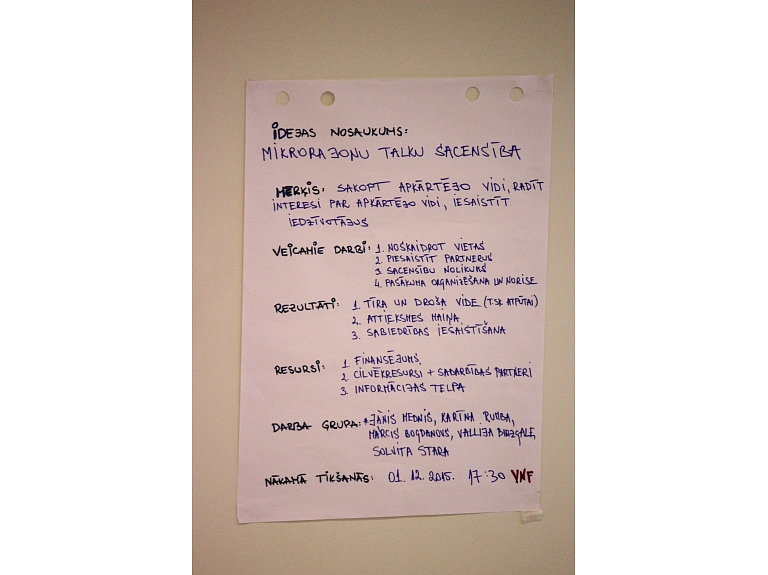 IDEJAS NOSAUKUMS:
MIKRORAJONU TALKU SACENSĪBA
MĒRĶIS: SAKOPT APKĀRTĒJO VIDI, RADĪT
INTERESI PAR APKĀRTĒJO VIDI, IESAISTĪT
IEDZĪVOTĀJUS
VEICAMIE DARBI: 1. NOSKAIDROT VIETAS
2. PIESAISTĪT PARTNERUS
3. SACENSĪBU NOLIKUMS
4. PASĀKUMA ORGANIZĒŠANA UN NORISE
REZULTĀTI: 1. TĪRA UN DROŠA VIDE (T.SK. ATPŪTAI)
2. ATTIEKSMES MAIŅA
3. SABIEDRĪBAS IESAISTĪŠANA
RESURSI: 1 FINANSĒJUMS,
2 CILVĒKRESURSI + SADARBĪBAS PARTNERI
3. INFORMĀCIJAS TELPA
DARBA GRUPA: *JĀNIS MEDNIS, KARĪNA RUMBA,
MĀRCIS BOGDANOVS, VALLIJA BIRZGALE,
SOLVITA STARA
NĀKAMĀ TIKŠANĀS: 01. 12. 2015. 17:30 VNF